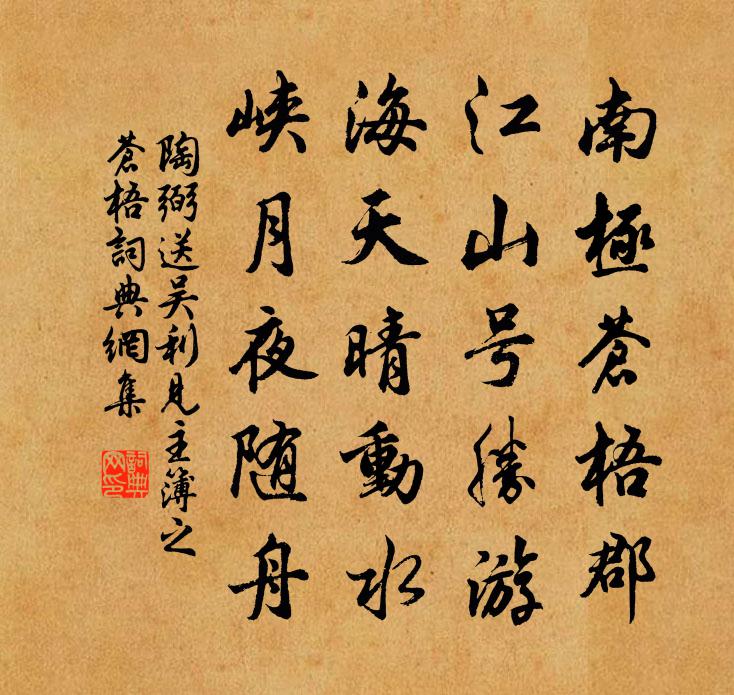 南極蒼梧郡
江山号勝游
海天晴動水
峡月夜随舟
陶弼送吴利見主簿之
蒼梧詞典網集
詞典
网印